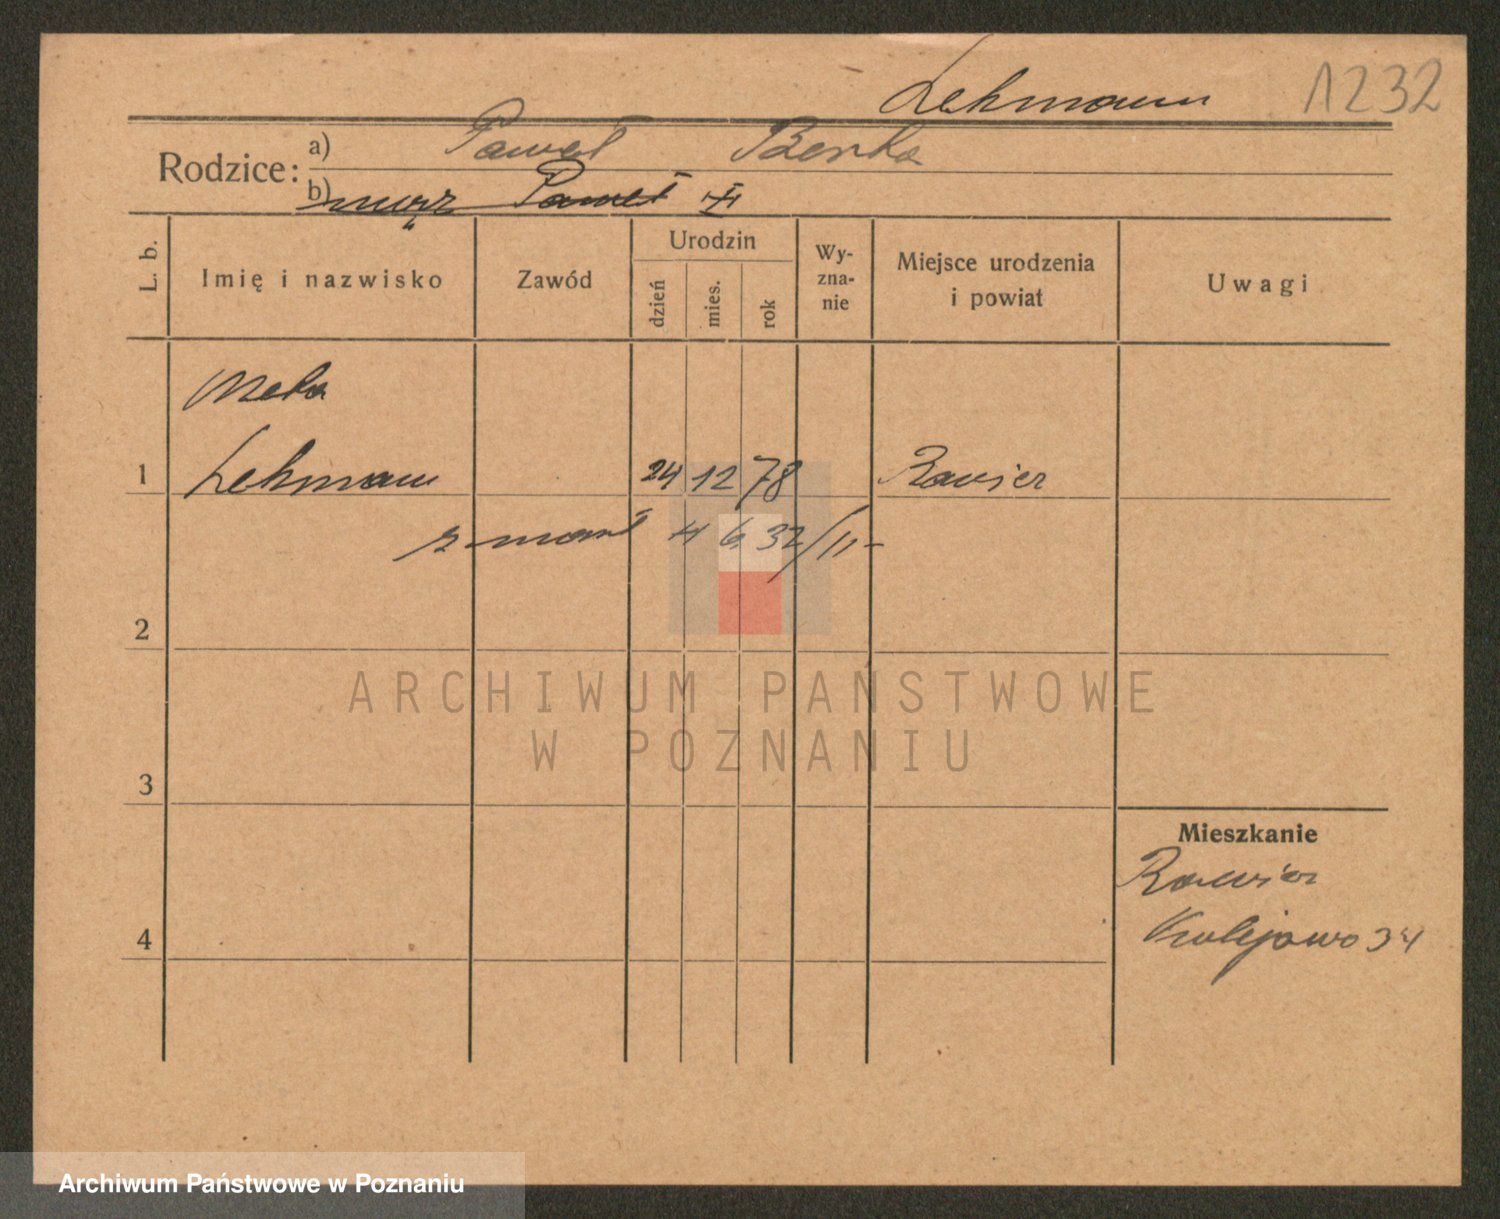 Lehmann 1232
Rodzice: a) Paweł Berta
b) mąż Paweł
L. b. Imię i nazwisko Zawód Urodzin dzień mies. rok Wy-zna-nie Miejsce urodzenia i powiat Uwagi
Meta
1 Lehmann 24 12 78 Rawicz
zmarł 4 6 32/II-
2
ARCHIWUM PAŃSTWOWE
W POZNANIU
3
Mieszkanie
Rawicz
4 34
Archiwum Państwowe w Poznaniu